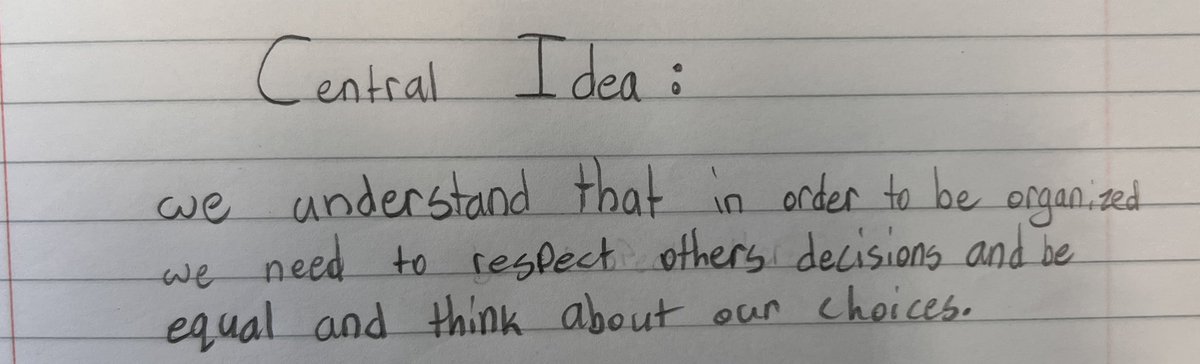 Central Idea:
we understand that in order to be organized
we need to respect others decisions and be
equal and think about our choices.